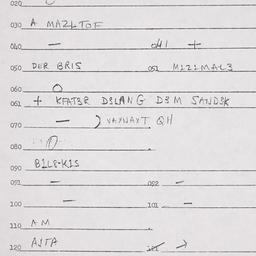 020
030 A MAZLTOF
040 — 041 +
050 DER BRIS 051 M121MAL3
060 O
061 + KFAT3R D3LANG D3M SANDSK
070 — ) VAYNAYT QH
080
090 B1L8-K1S
091 — 092 —
100 — 101 —
110 AM
120 121